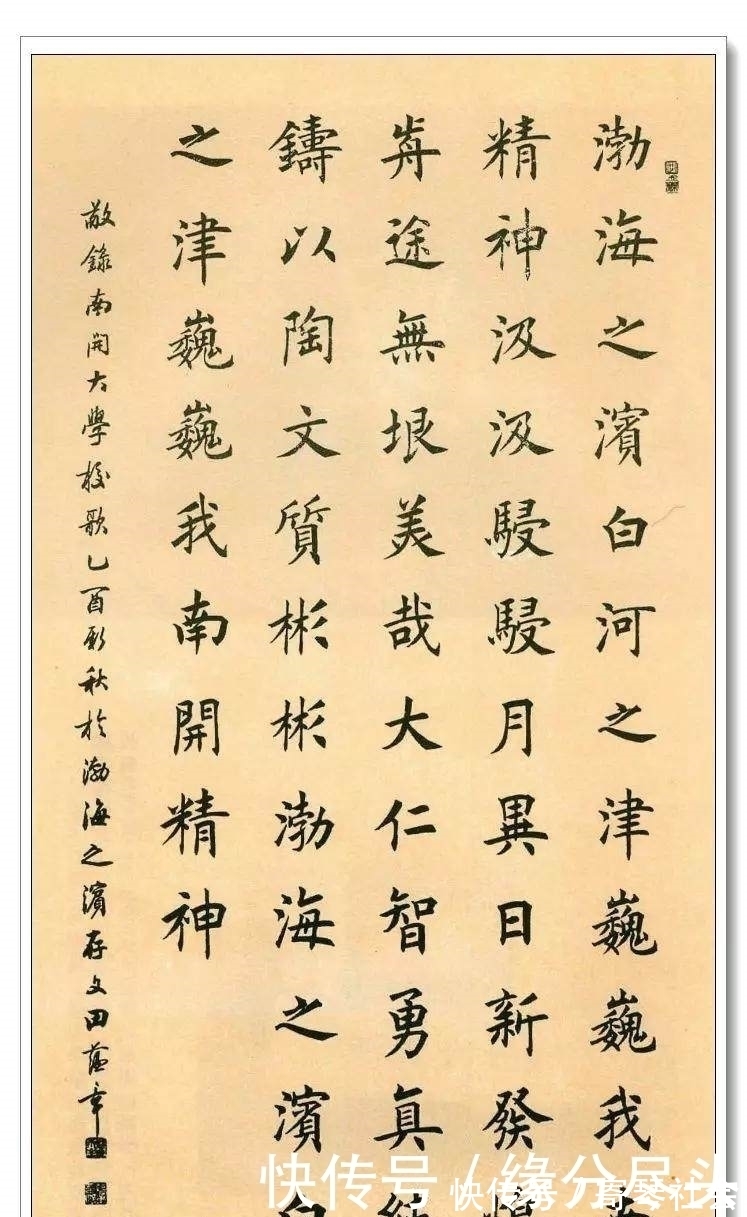 渤海之濱白河之津巍巍我
精神汲汲駸駸月異日新發
歬途無垠美哉大仁智勇真
鑄以陶文質彬彬渤海之濱白
之津巍巍我南開精神
敬錄南開大學校歌乙酉新秋於渤海之濱存文田蘊章
快传号 / 缘分尽头
快传号